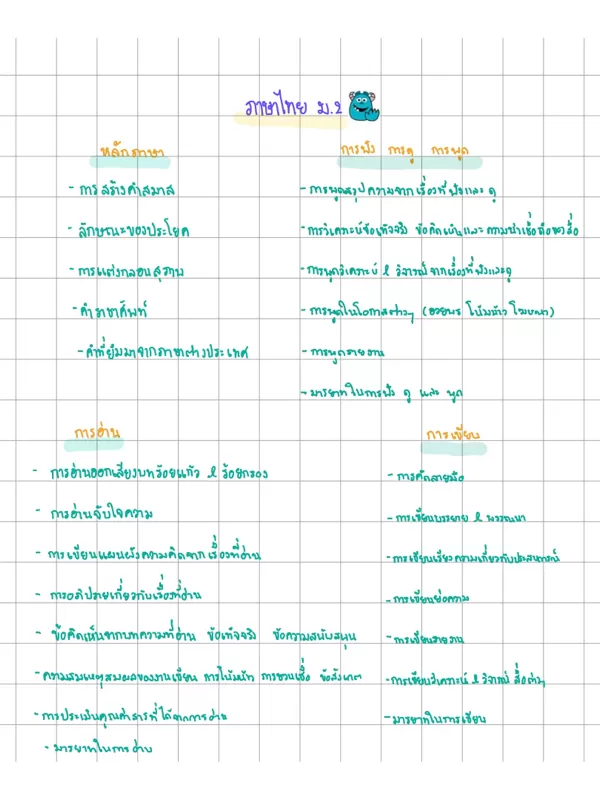 ภาษาไทย ม.2
หลักภาษา
- การสร้างคำสมาส
- ลักษณะของประโยค
- การแต่งกลอนสุภาพ
- คำราชาศัพท์
- คำที่ยืมมาจากภาษาต่างประเทศ
การฟัง การดู การพูด
- การพูดสรุปความจากเรื่องที่ฟังและดู
- การวิเคราะห์ข้อเท็จจริง ข้อคิดเห็นและความน่าเชื่อถือของสื่อ
- การพูดวิเคราะห์ & วิจารณ์จากเรื่องที่ฟังและดู
- การพูดในโอกาสต่างๆ (อวยพร โน้มน้าว โฆษณา)
- การพูดรายงาน
- มารยาทในการฟัง ดู และ พูด
การอ่าน
- การอ่านออกเสียงบทร้อยแก้ว & ร้อยกรอง
- การอ่านจับใจความ
- การเขียนแผนผังความคิดจากเรื่องที่อ่าน
- การอภิปรายเกี่ยวกับเรื่องที่อ่าน
- ข้อคิดเห็นจากบทความที่อ่าน ข้อเท็จจริง ข้อความสนับสนุน
- ความสมเหตุสมผลของงานเขียน การโน้มน้าว การชวนเชื่อ ข้อสังเกต
- การประเมินคุณค่าสารที่ได้จากการอ่าน
- มารยาทในการอ่าน
การเขียน
- การคัดลายมือ
- การเขียนบรรยาย & พรรณนา
- การเขียนเรียงความเกี่ยวกับประสบการณ์
- การเขียนย่อความ
- การเขียนรายงาน
- การเขียนวิเคราะห์ & วิจารณ์ สื่อต่างๆ
- มารยาทในการเขียน